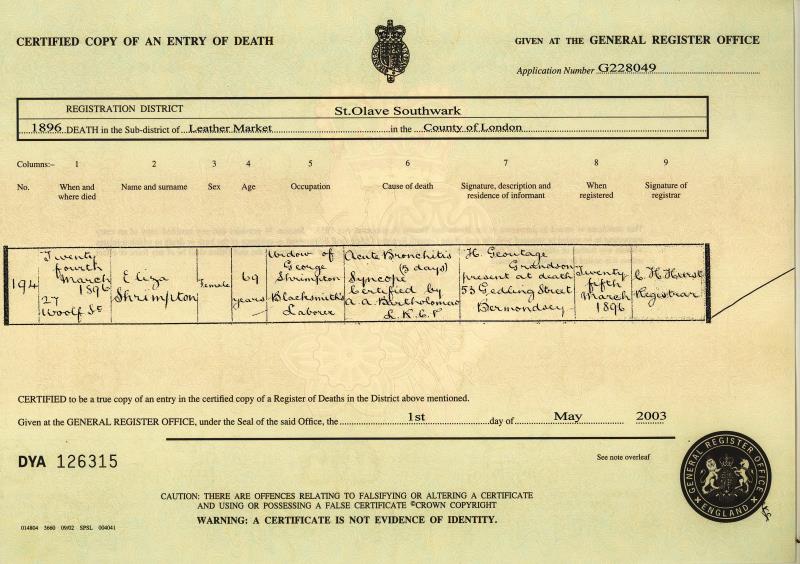 CERTIFIED COPY OF AN ENTRY OF DEATH
GIVEN AT THE GENERAL REGISTER OFFICE
Application Number G228049
REGISTRATION DISTRICT St.Olave Southwark
1896 DEATH in the Sub-district of Leather Market in the County of London
Columns:– 1 2 3 4 5 6 7 8 9
No. When and where died Name and surname Sex Age Occupation Cause of death Signature, description and residence of informant When registered Signature of registrar
194
Twenty
fourth
March
1896
27
Woolf St
Eliza
Shrimpton
Female
69
years
Widow of
George
Shrimpton
Blacksmith's
Laborer
Acute Bronchitis
(3 days)
Syncope
Certified by
A. A. Bartholomew
L.R.C.P
Grandson
present at death
53 Gedling Street
Bermondsey
Twenty
fifth
March
1896
C. H. Hurst
Registrar
CERTIFIED to be a true copy of an entry in the certified copy of a Register of Deaths in the District above mentioned.
Given at the GENERAL REGISTER OFFICE, under the Seal of the said Office, the 1st day of May 2003
DYA 126315
See note overleaf
CAUTION: THERE ARE OFFENCES RELATING TO FALSIFYING OR ALTERING A CERTIFICATE
AND USING OR POSSESSING A FALSE CERTIFICATE ©CROWN COPYRIGHT
WARNING: A CERTIFICATE IS NOT EVIDENCE OF IDENTITY.
014804 3660 09/02 SPSL 004041
GENERAL REGISTER OFFICE
ENGLAND